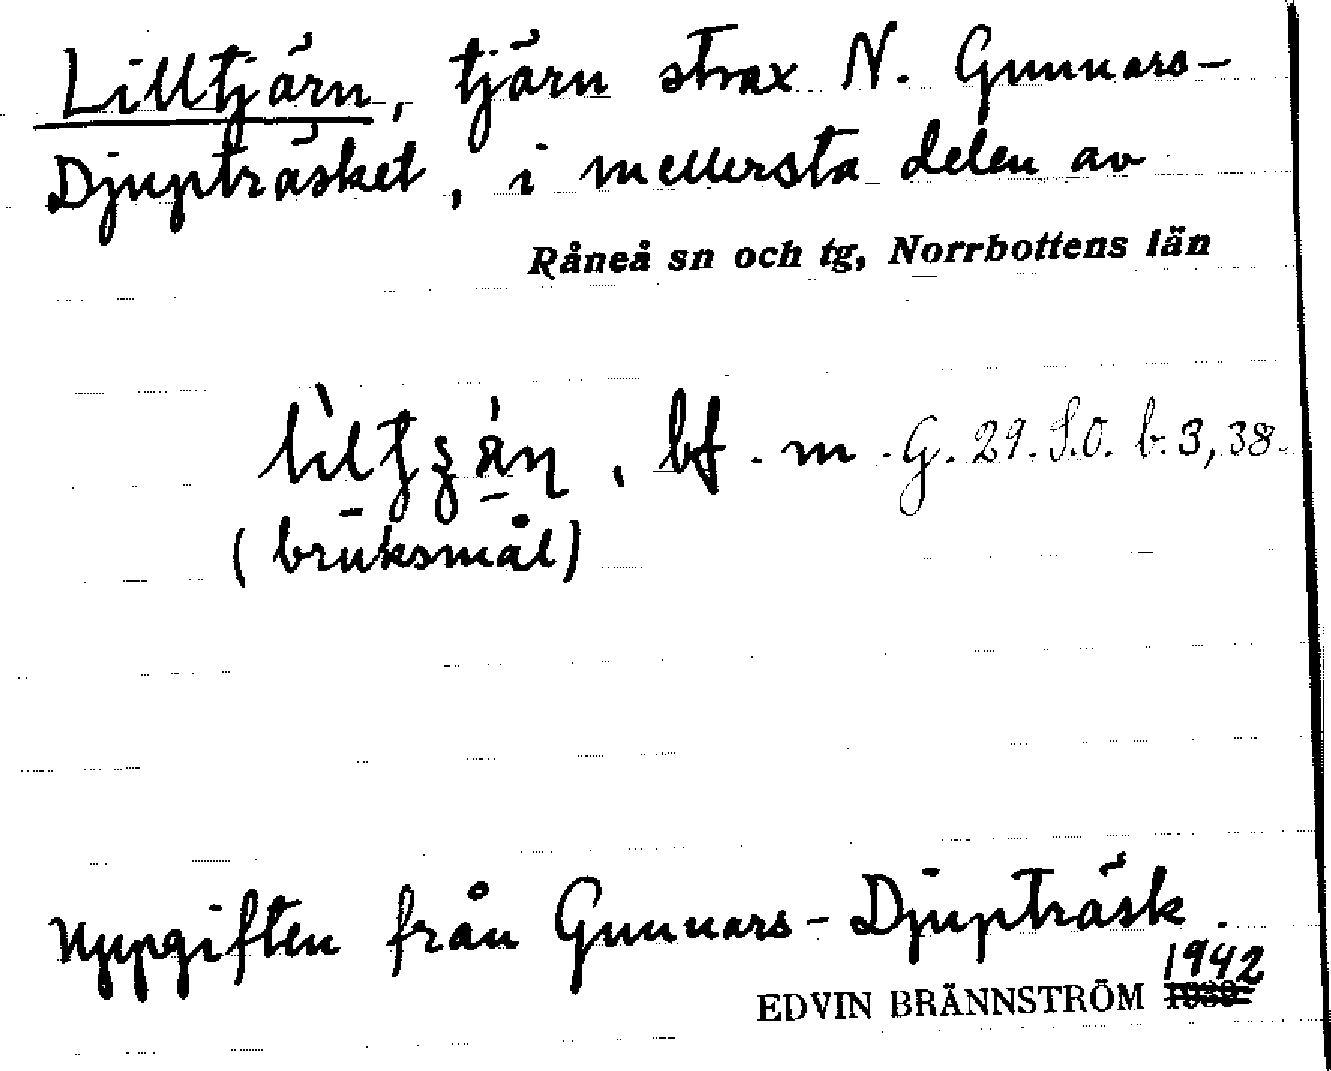 Lilltjärn, tjärn strax N. Gunnars-
Djupträsket, i mellersta delen av
Råneå sn och tg, Norrbottens län
bf. m. G. 29. S.O. b. 3, 38.
(bruksmål)
Uppgiften från Gunnars-Djupträsk.
1942
EDVIN BRÄNNSTRÖM 1939